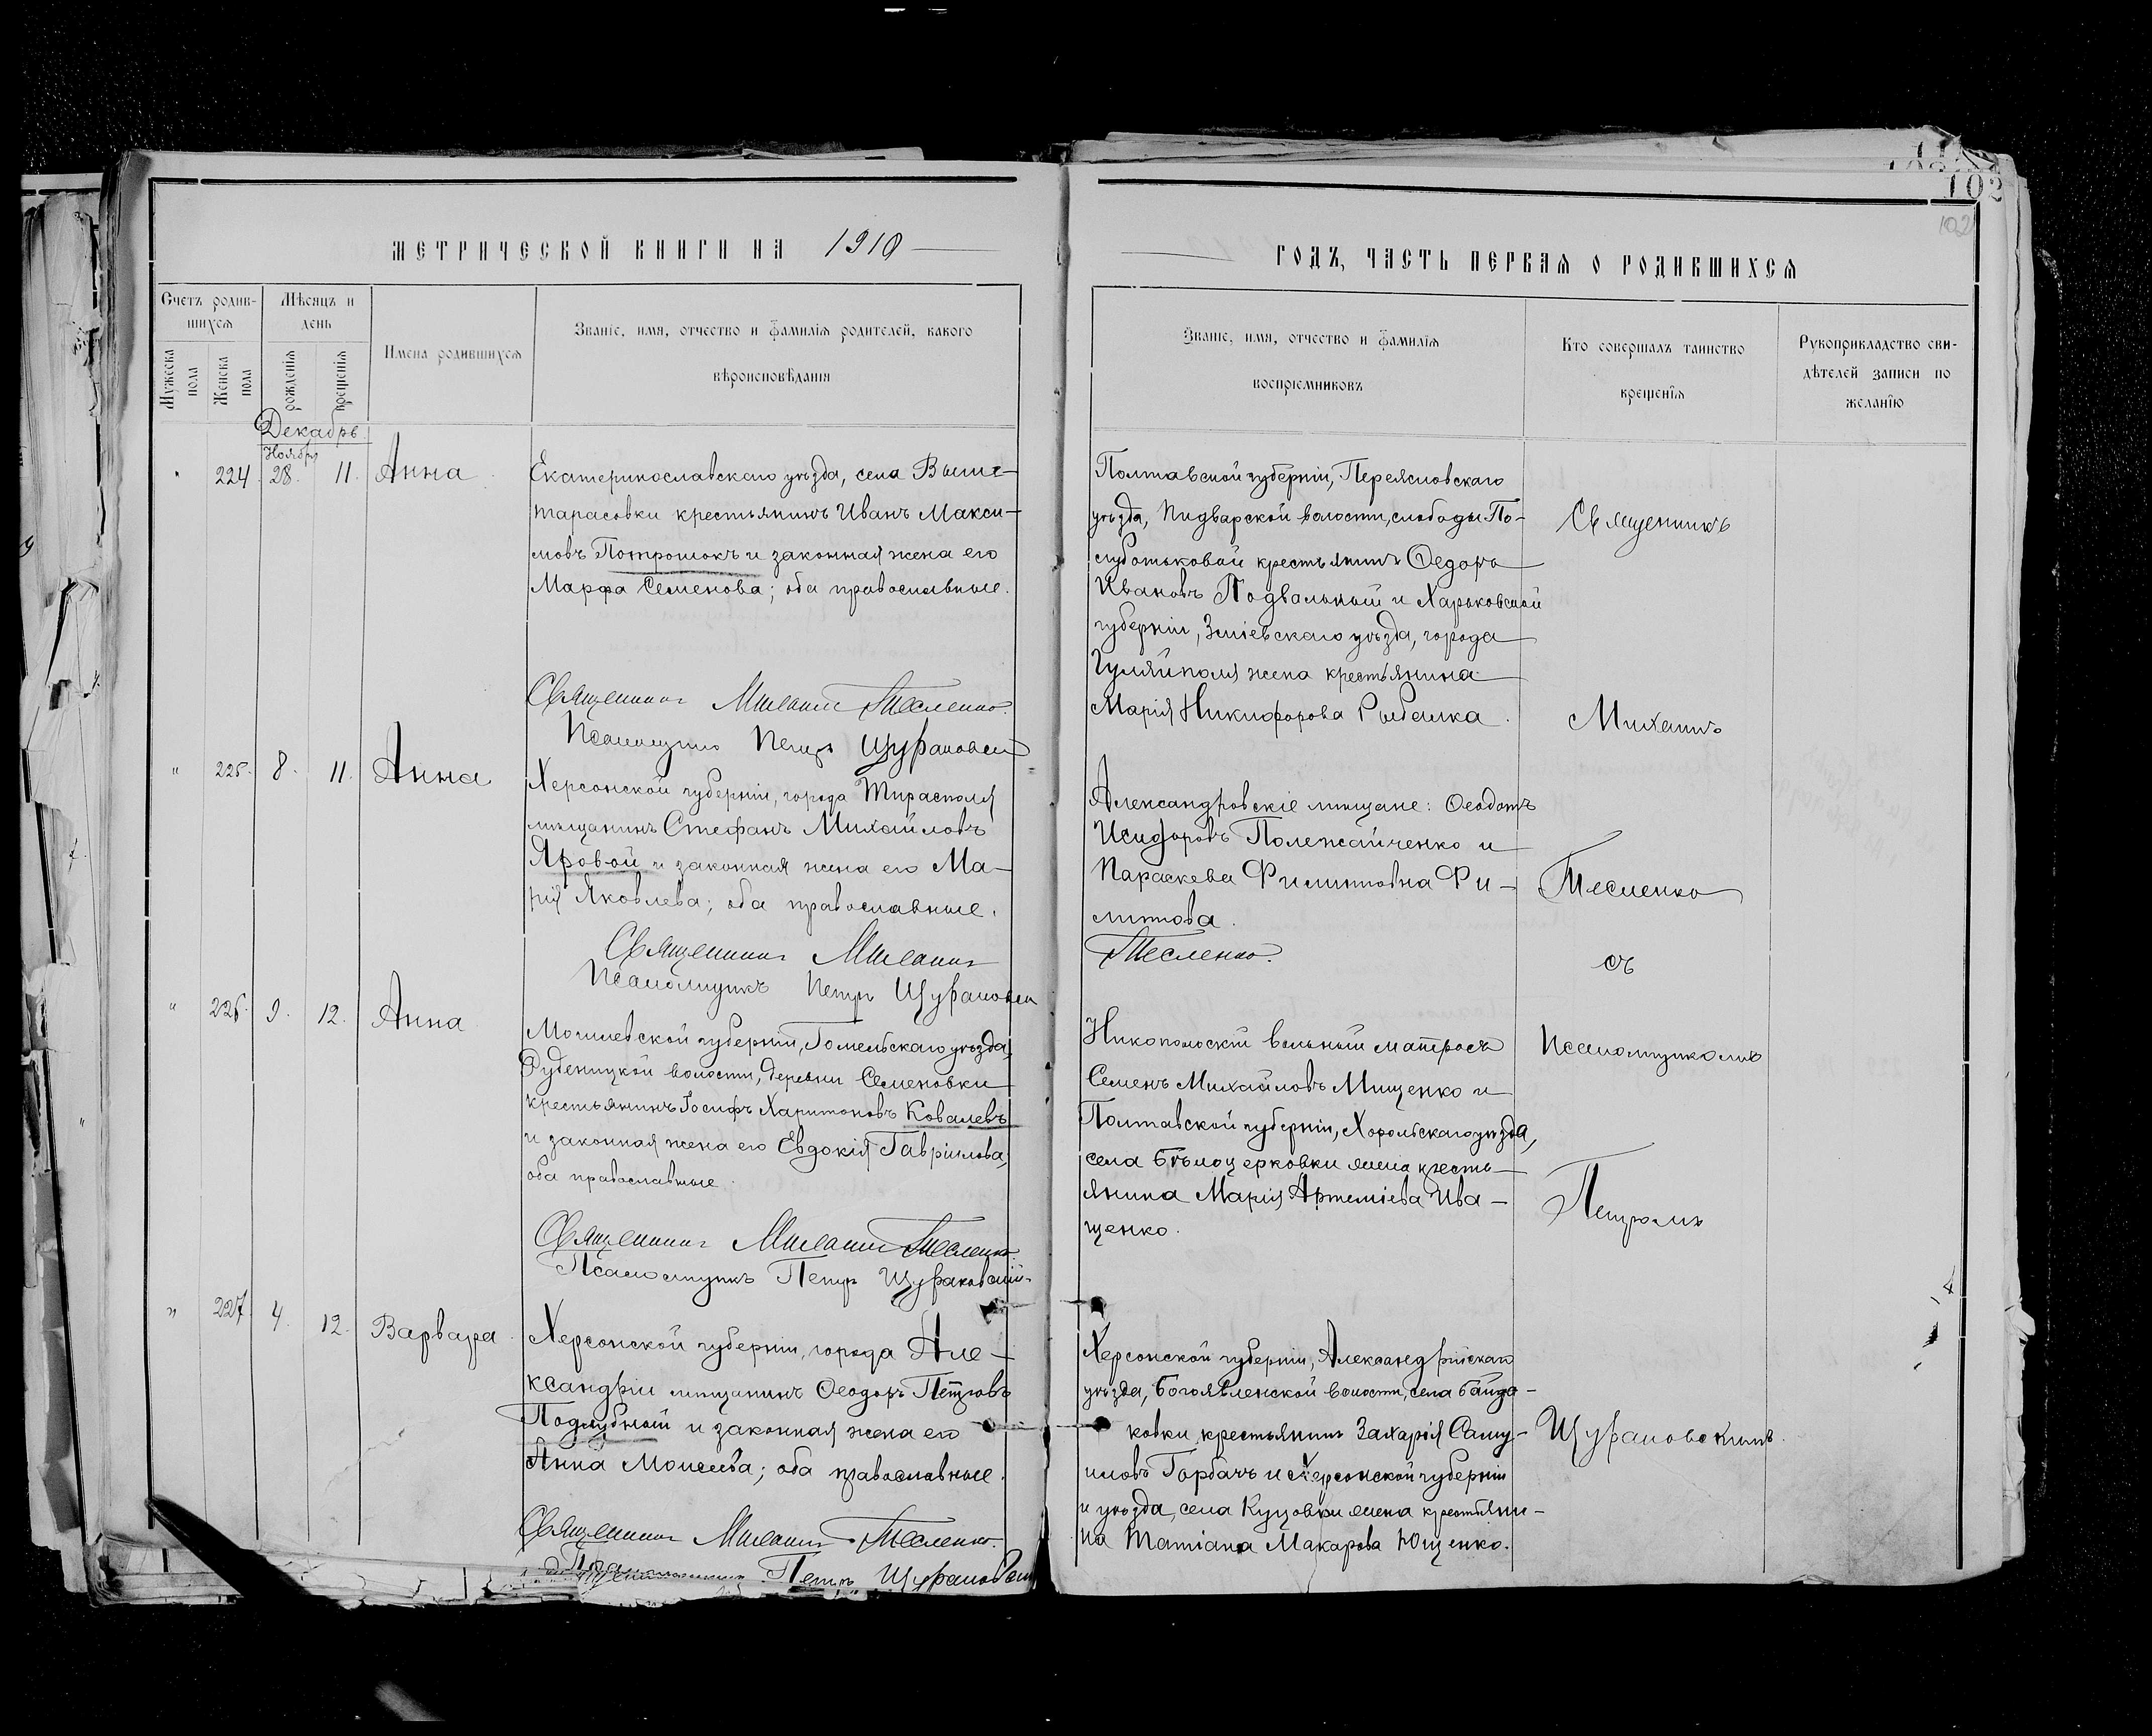 102
102
МЕТРИЧЕСКОЙ КНИГИ НА 1910
Счетъ родив-
шихся
Мѣсяцъ и
день
Имена родившихся
Званіе, имя, отчество и фамилія родителей, какого
вѣроисповѣданія
Мужеска
пола
Женска
пола
рожденія
крещенія
Декабрь
Ноября
224 28. 11. Анна
Екатеринославскаго уѣзда, села Выше-
тарасовки крестьянинъ Иванъ Макси-
мовъ Потрошокъ и законная жена его
Марфа Семенова; оба православные.
Священникъ Михаилъ Тесленко.
Псаломщикъ Петръ Щурановскій
" 225. 8. 11. Анна
Херсонской губерніи, города Тирасполя
мѣщанинъ Стефанъ Михайловъ
Яровой и законная жена его Ма-
рія Яковлева; оба православные.
Священникъ Михаилъ
Псаломщикъ Петръ Щурановскій
" 226. 9. 12. Анна
Могилевской губерніи, Гомельскаго уѣзда,
волости, деревни Семеновки
крестьянинъ Іосифъ Харитоновъ Ковалевъ
и законная жена его Евдокія Гавріилова,
оба православные.
Священникъ Михаилъ Тесленко.
Псаломщикъ Петръ Щурановскій.
" 227 4. 12. Варвара
Херсонской губерніи, города Але-
ксандріи мѣщанинъ Ѳеодоръ Петровъ
Поддубный и законная жена его
Анна Моисеева; оба православные.
Священникъ Михаилъ Тесленко.
Петръ Щурановскій
ГОДЪ, ЧАСТЬ ПЕРВАЯ О РОДИВШИХСЯ
Званіе, имя, отчество и фамилія
воспріемниковъ
Кто совершалъ таинство
крещенія
Рукоприкладство сви-
дѣтелей записи по
желанію
Полтавской губерніи, Переясловскаго
уѣзда, Пидварской волости, слободы
крестьянинъ Ѳедоръ
Ивановъ Подвальный и Харьковской
губерніи, Зміевскаго уѣзда, города
Гуляйполя жена крестьянина
Марія Никифорова Рыбалка.
Александровскіе мѣщане: Ѳеодотъ
Исидоровъ Полежайченко и
Параскева Филиповна Фи-
липова.
Тесленко.
Никопольскій вольный матросъ
Семенъ Михайловъ Мищенко и
Полтавской губерніи, Хорольскаго уѣзда,
села Бѣлоцерковки жена кресть-
янина Марія Артеміева Ива-
щенко.
Херсонской губерніи, Александрійскаго
уѣзда, Богоявленской волости, села Байда-
ковки, крестьянинъ Захарія Саму-
иловъ Горбачъ и Херсонской губерніи
и уѣзда, села Куцовки жена крестьяни-
на Татіана Макарова Ющенко.
Священникъ
Михаилъ
Тесленко
съ
псаломщикомъ
Петромъ
Щурановскимъ.